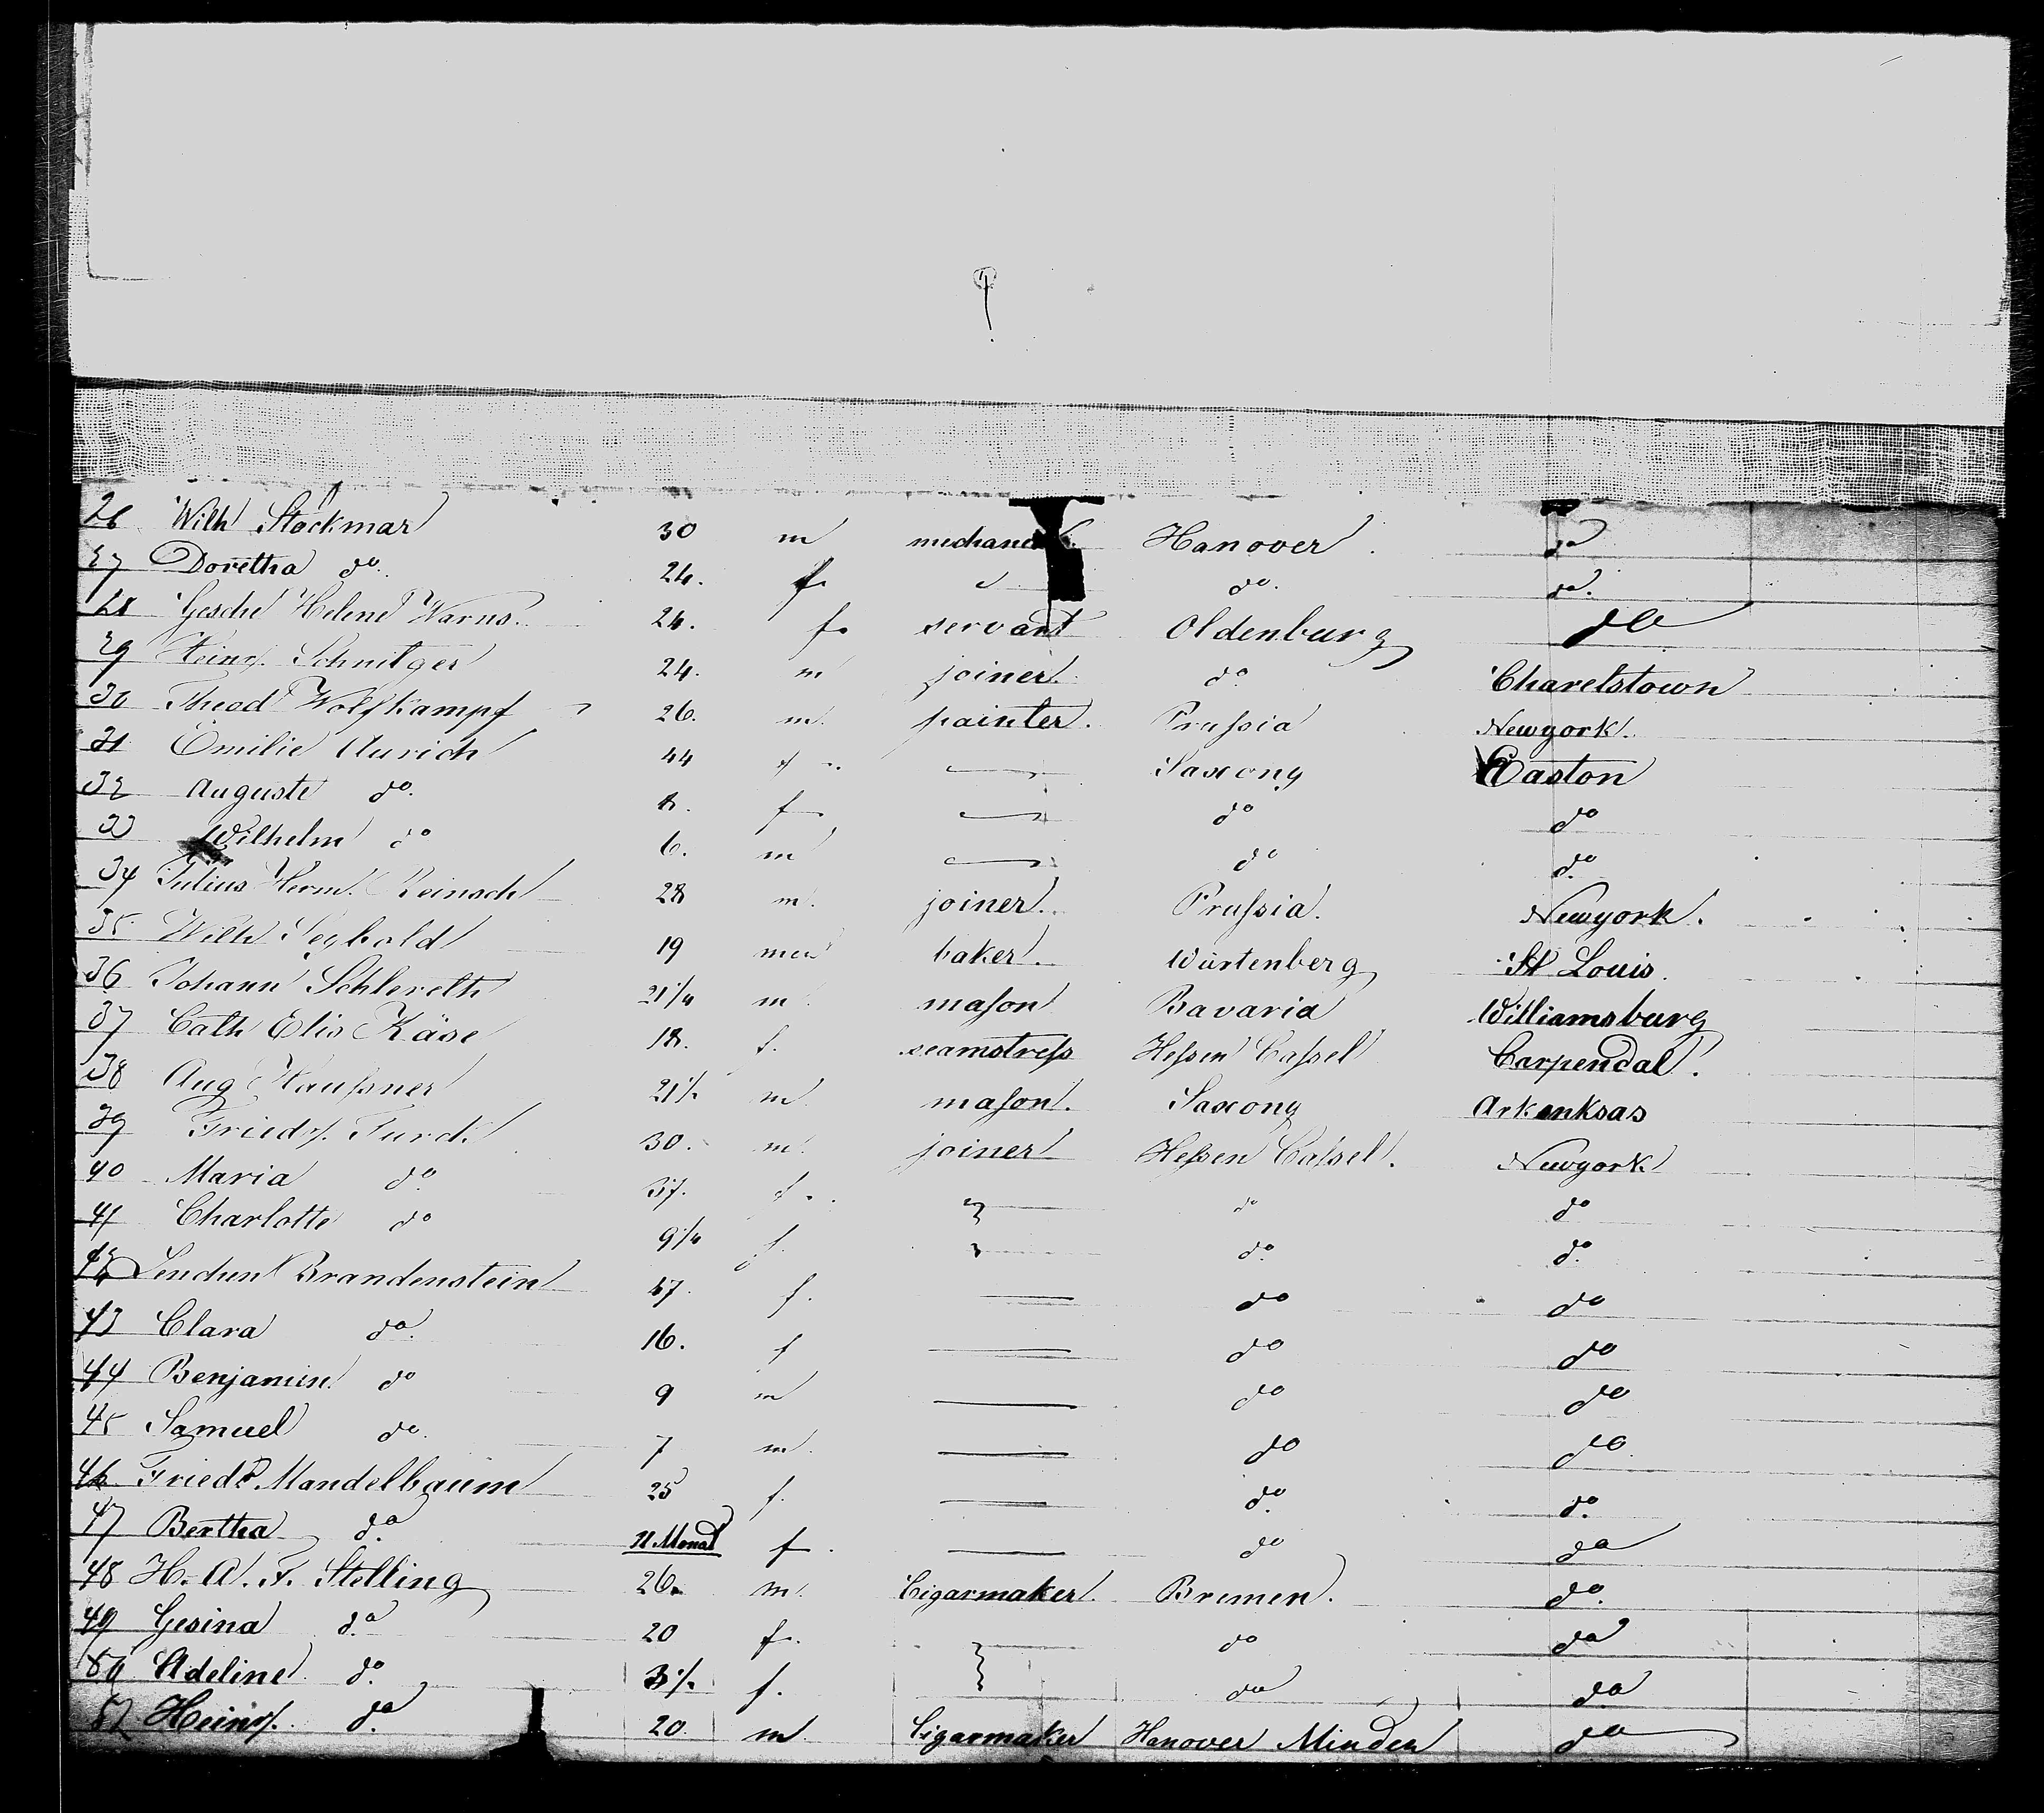 26 Wilh Stockmar 30 m mechanick. Hanover. do
27 Doretha do. 24. f. do. do.
28 Gesche Helene Warns. 24. f. servant Oldenburg do
29 Heinr. Schnitger 24. m joiner. do. Charelstown
30 Theod Wolfkampf 26. m. painter. Prussia Newyork.
31 Emilie Aurich 44 f Saxony Easton
32 Auguste do. 8. f do do
33 Wilhelm do 6. m do do.
34 Julius Herm. Reinsch 28 m. joiner. Prussia. Newyork.
35 Wilh Seybold 19 m baker. Würtenberg St Louis.
36 Johann Schlereth 21 1/4 m mason Bavaria Williamsburg
37 Cath Elis Käse 18. f. seamstress Hessen Cassel Carpendal.
38 Aug Haussner 21 1/2 m mason. Saxony Arkenksas
39 Friedr. Turck 30. m. joiner Hessen Cassel. Newyork
40 Maria do 37. f. do do
41 Charlotte do 9 1/4 f. do. do.
42 Brandenstein 47. f. do do
43 Clara do. 16. f do do
44 Benjamin do 9 m do do
45 Samuel do. 7 m. do do.
46 Friedr. Mandelbaum 25 f. do. do.
47 Bertha do. 11 Monat f. do do
48 H. A. F. Stelling 26. m. Cigarmaker. Bremen. do.
49 Gesina do. 20 f. do do
50 Adeline do. 3 1/2 f. do do
51 Heinr. do. 20. m. Cigarmaker Hanover Minden do